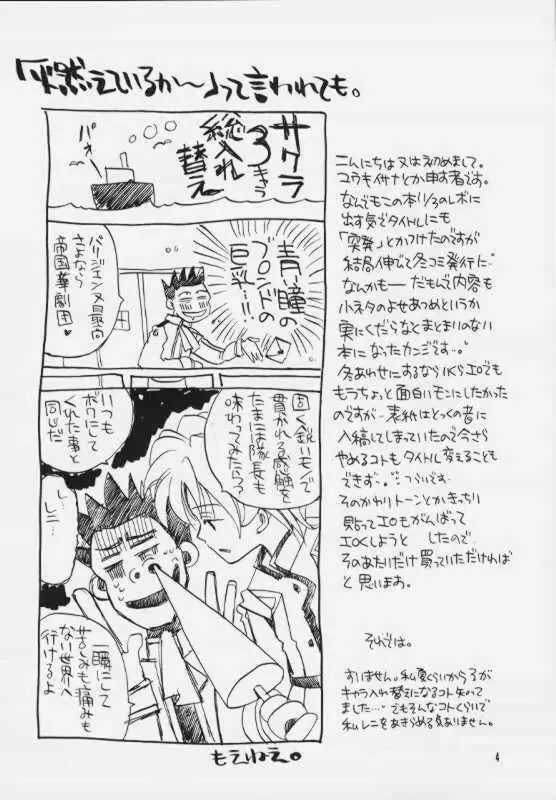 「燃えているか〜」って言われても。
サクラ
3 キャラ
総入れ
替え
パオー
青い瞳の
ブロンドの
巨乳…!!
パリジェンヌ最高
さよなら
帝国華劇団
固く鋭いモンで
貫かれる感触を
たまには隊長も
味わってみたら?
いつも
ボクにして
くれた事と
同じだ
レニ…
し…
一瞬にして
苦しみも痛みも
ない世界へ
行けるよ
もえねえ。
こんにちは又は初めまして。
コウキイサナとか申す者です。
なんでもこの本1/3のレボに
出す気でタイトルにも
「突発」とかつけたのですが
結局伸びて冬コミ発行に。
なんかも── だもんで内容も
小ネタのよせあつめというか
実にくだらなくまとまりのない
本になったカンジです…。
冬あわせにするならIKらIOでも
もうちょっと面白いモンにしたかった
のですが、表紙はとっくの昔に
入稿してしまっていたので今さら
やめるコトもタイトル変えることも
できず…。つらいです。
そのかわりトーンとかきっちり
貼ってエロもがんばって
エロくしようと したので、
そのあたいだけ買っていただければ
と思いまあ。
それでは。
すいません。私夏くらいから3が
キャラ入れ替えになるコト知って
ました…。でもそんなコトくらいで
私レニをあきらめる気ありません。
4